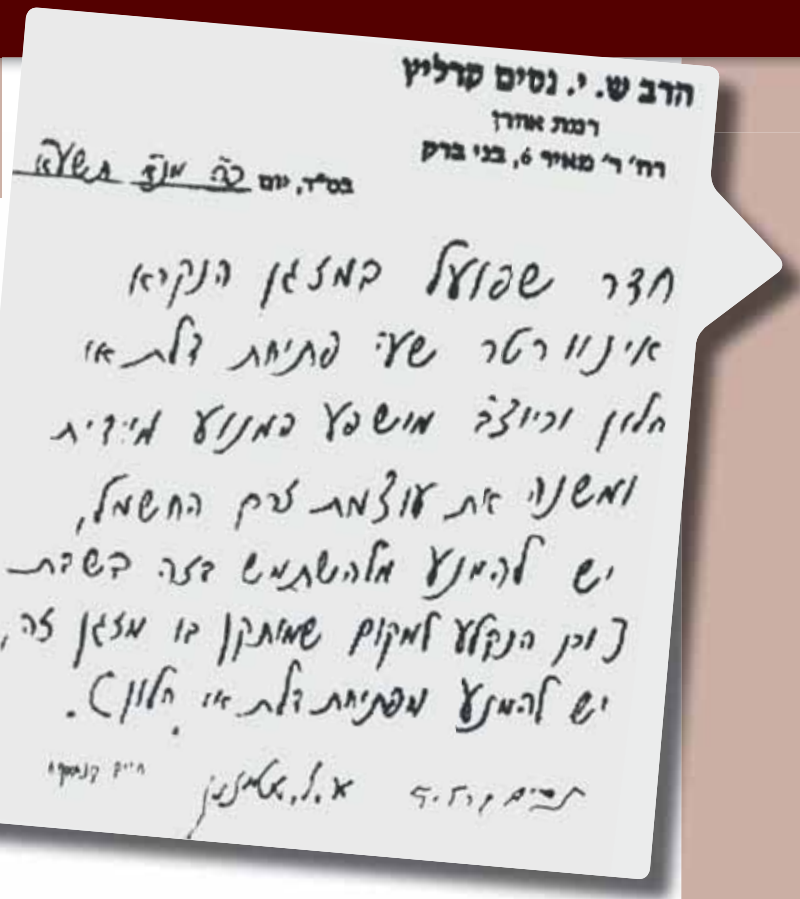 הרב ש. י. נסים קרליץ
רמת אהרן
רח' ר' מאיר 6, בני ברק
בס"ד, יום כ"ה מנ"א תשע"א
חדר שפועל במזגן הנקרא
אינוורטר שע"י פתיחת דלת או
חלון וכיוצ"ב מושפע המנוע מידית
ומשנה את עוצמת זרם החשמל,
יש להמנע מלהשתמש בזה בשבת
[וכן הנקלע למקום שמותקן בו מזגן זה,
יש להמנע מפתיחת דלת או חלון].